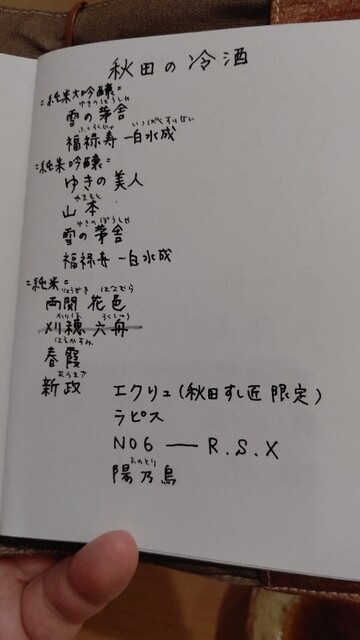 秋田の冷酒
=純米大吟醸=
ゆきのぼうしゃ
雪の茅舎
ふくろくじゅ いっぱくすいせい
福禄寿 一白水成
=純米吟醸=
ゆきの美人
やまもと
山本
ゆきのぼうしゃ
雪の茅舎
福禄寿 一白水成
=純米=
りょうぜき はなむら
両関 花邑
かりほ ろくしゅう
刈穂 六舟
はるかすみ
春霞
あらまさ
新政 エクリュ(秋田すし匠限定)
ラピス
NO6 — R.S.X
ひのとり
陽乃鳥